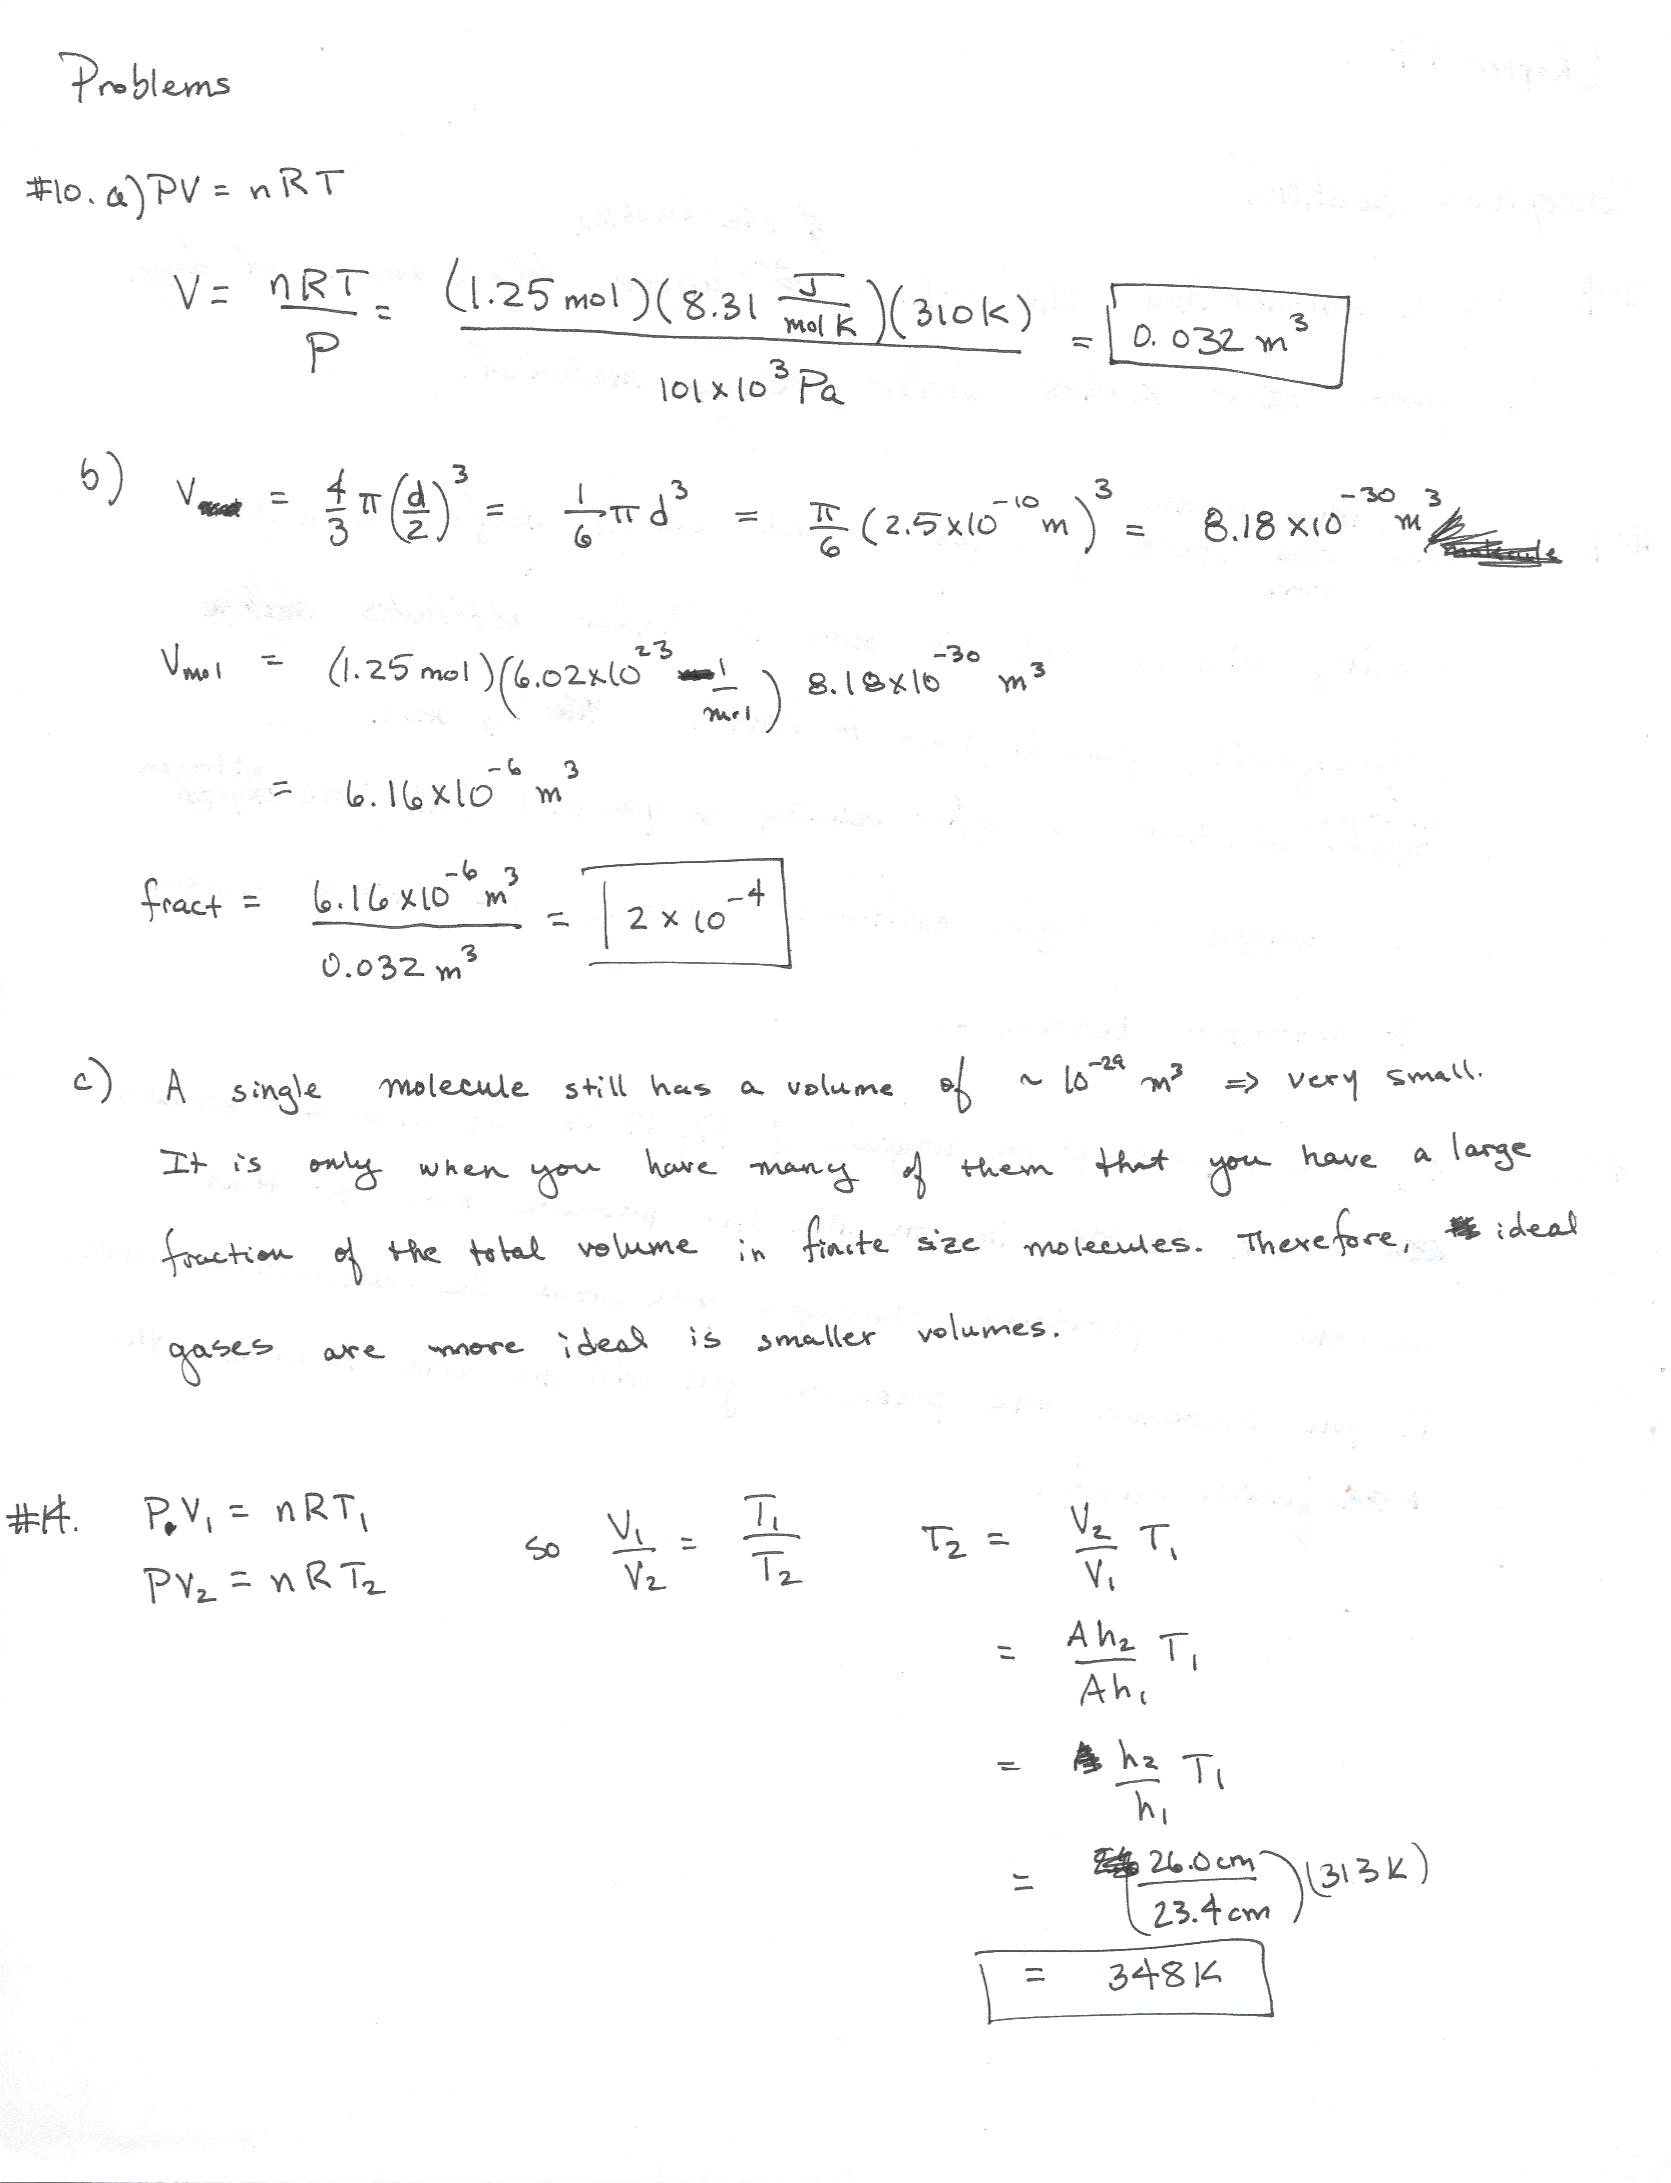 Problems
#10. a) PV = nRT
V = nRT/P = (1.25 mol)(8.31 J/mol K)(310K) / 101x10³ Pa = 0.032 m³
b) V = 4/3 π (d/2)³ = 1/6 π d³ = π/6 (2.5x10⁻¹⁰ m)³ = 8.18 x10⁻³⁰ m³
Vmol = (1.25 mol)(6.02x10²³ 1/mol) 8.18x10⁻³⁰ m³
= 6.16x10⁻⁶ m³
fract = 6.16x10⁻⁶ m³ / 0.032 m³ = 2 x 10⁻⁴
c) A single molecule still has a volume of ~ 10⁻²⁹ m³ => very small.
It is only when you have many of them that you have a large
fraction of the total volume in finite size molecules. Therefore, ideal
gases are more ideal is smaller volumes.
#14. P V₁ = nRT₁
PV₂ = nRT₂
so V₁/V₂ = T₁/T₂
T₂ = V₂/V₁ T₁
= Ah₂/Ah₁ T₁
= h₂/h₁ T₁
= (26.0cm/23.4cm)(313K)
= 348K